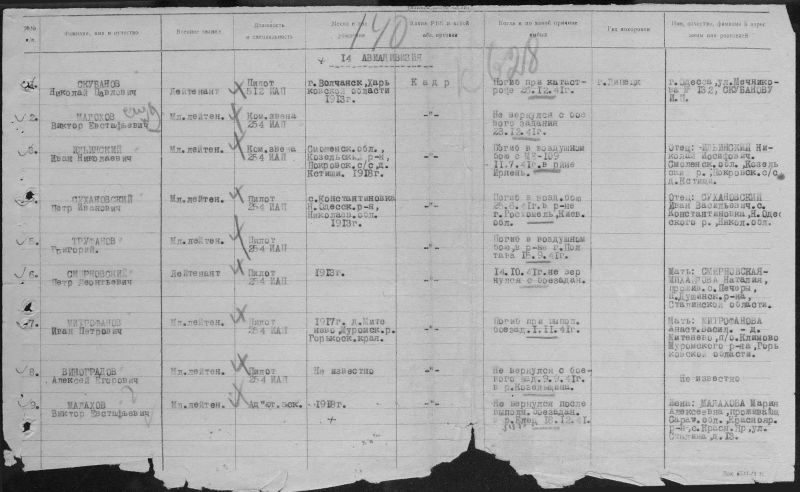 140
628
№№ п/п
Фамилия, имя и отчество
Военное звание
Должность и специальность
Когда и по какой причине выбыл
Где похоронен
14 АВИАДИВИЗИЯ
СКУБАНОВ
Николай Павлович
Лейтенант
Пилот
512 ИАП
г.Волчанск, Харь
ковской области
1913г.
Кадр
Погиб при катаст-
рофе 25.12.41г.
г.Липецк
г.Одесса, ул.Мечнико-
ва № 132, СКУБАНОВУ
2.
МАЛОХОВ
Виктор Евстафьевич
Мл.лейтен.
Ком.звена
254 ИАП
-"-
Не вернулся с бое
вого задания
23.12.41г.
3.
ИЛЬИНСКИЙ
Иван Николаевич
Мл.лейтен.
Ком.звена
254 ИАП
Смоленск.обл.,
Козельский р-н,
Покровск.с/с д.
Кстищи. 1918г.
-"-
Погиб в воздушном
бою с МЕ-109
11.7.41г. в р-не
Ирпень.
Отец: ИЛЬИНСКИЙ Ни-
колай Иосифович.
Смоленск.обл., Козель
ский р., Покровск.с/с
д.Кстищи.
СУХАНОВСКИЙ
Петр Иванович
Мл.лейтен.
Пилот
254 ИАП
с.Константиновка
Н.Одесск.р-н,
Николаев.обл.
1913г.
-"-
Погиб в возд.бою
25.6.41г. в р-не
г.Гостомель, Киев.
обл.
Отец: СУХАНОВСКИЙ
Иван Васильевич. с.
Константиновка, Н.Одес
ского р., Никол.обл.
5.
ТРУФАНОВ
Григорий.
Мл.лейтен.
Пилот
254 ИАП
-"-
Погиб в воздушном
бою, в р-не г.Пол
тава 15.9.41г.
6.
СМИРНОВСКИЙ
Петр Леонтьевич
Лейтенант
Пилот
254 ИАП
1913г.
-"-
14.10.41г. не вер
нулся с боезадан.
Мать: СМИРНОВСКАЯ-
Наталия,
прожив.с.Печеры,
Сталинской области.
7.
МИТРОФАНОВ
Иван Петрович
Мл.лейтен.
Пилот
254 ИАП
1917г. д.Мите
нево, Муромск.р.
Горьковск.края.
-"-
Погиб при выпол.
боезад. 1.11.41г.
Мать: МИТРОФАНОВА
Анаст.Васил. - д.
Митенево, п/о.Климово
Муромского р-на, Горь
ковской области.
8.
ВИНОГРАДОВ
Алексей Егорович
Мл.лейтен.
Пилот
254 ИАП
Не известно
-"-
Не вернулся с бое-
вого зад. 9.9.41г.
в р.Козельщина.
Не известно
9.
МАЛАХОВ
Виктор Евстафьевич
Мл.лейтен.
Ад"ют.эск.
1918г.
-"-
Не вернулся после
выполн. боезадан.
в р.Елец 18.12.41.
Жена: МАЛАХОВА Мария
Алексеевна, проживающ
Сарат.обл., Красноярс.
р-н, с.Красн.Яр, ул.
Сталина, д.13.